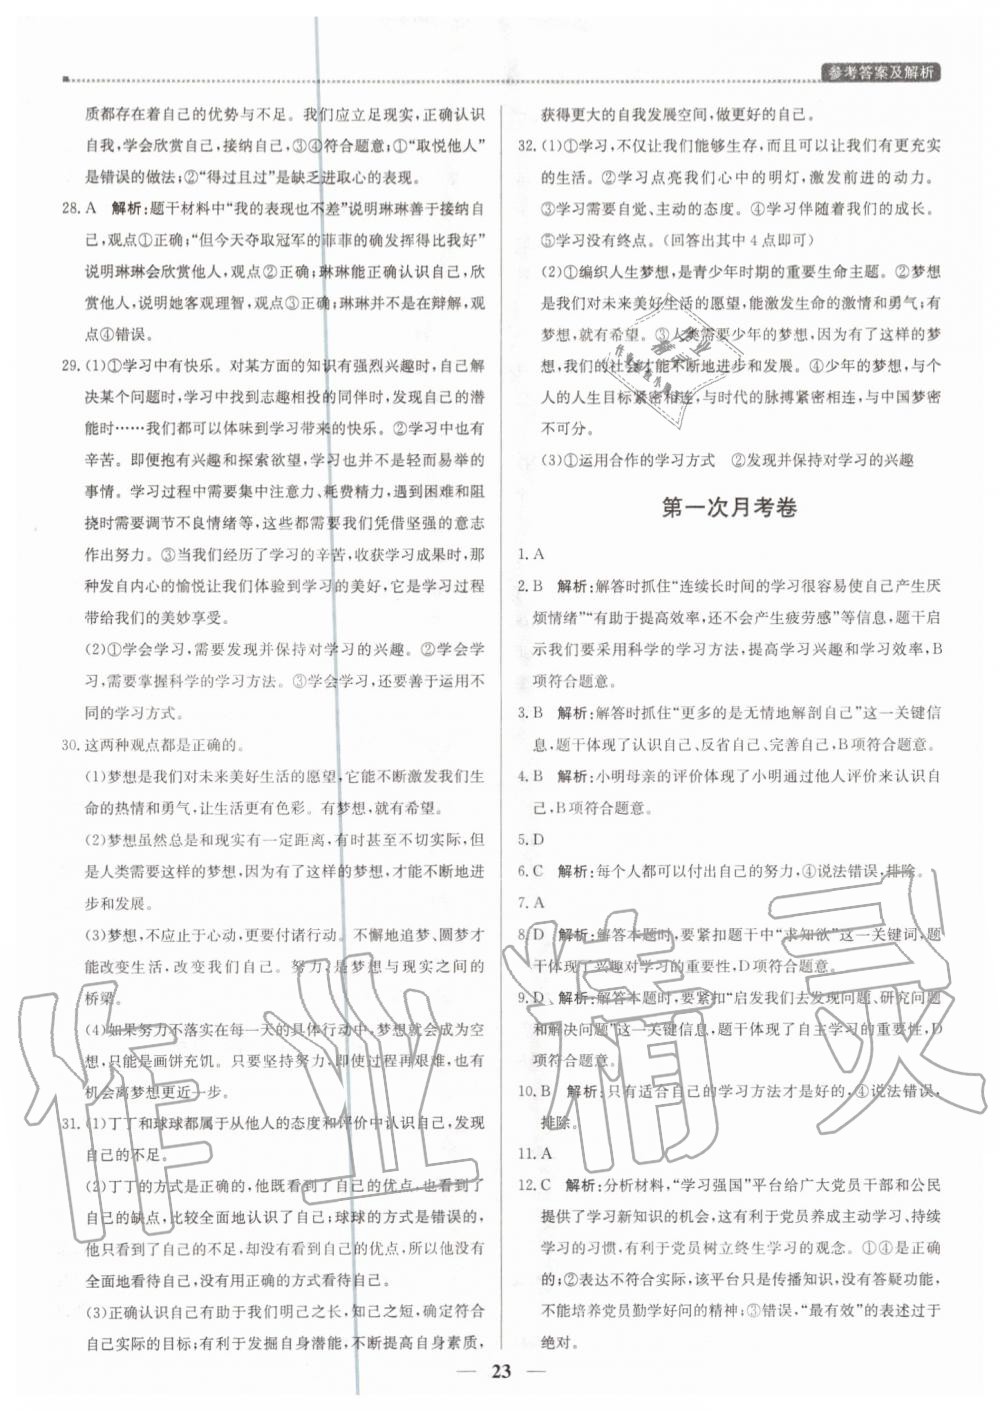 参考答案及解析
质都存在着自己的优势与不足。我们应立足现实,正确认识
自我,学会欣赏自己,接纳自己,③④符合题意;①“取悦他人”
是错误的做法;②“得过且过”是缺乏进取心的表现。
28. A 解析:题干材料中“我的表现也不差”说明琳琳善于接纳自
己,观点①正确;“但今天夺取冠军的菲菲的确发挥得比我好”
说明琳琳会欣赏他人,观点②正确;琳琳能正确认识自己,欣
赏他人,说明她客观理智,观点③正确;琳琳并不是在辩解,观
点④错误。
29. (1)①学习中有快乐。对某方面的知识有强烈兴趣时,自己解
决某个问题时,学习中找到志趣相投的同伴时,发现自己的潜
能时……我们都可以体味到学习带来的快乐。②学习中也有
辛苦。即便抱有兴趣和探索欲望,学习也不是轻而易举的
事情。学习过程中需要集中注意力、耗费精力,遇到困难和阻
挠时需要调节不良情绪等,这些都需要我们凭借坚强的意志
作出努力。③当我们经历了学习的辛苦,收获学习成果时,那
种发自内心的愉悦让我们体验到学习的美好,它是学习过程
带给我们的美妙享受。
(2)①学会学习,需要发现并保持对学习的兴趣。②学会学
习,需要掌握科学的学习方法。③学会学习,还要善于运用不
同的学习方式。
30. 这两种观点都是正确的。
(1)梦想是我们对未来美好生活的愿望,它能不断激发我们生
命的热情和勇气,让生活更有色彩。有梦想,就有希望。
(2)梦想虽然总是和现实有一定距离,有时甚至不切实际,但
是人类需要这样的梦想,有了这样的梦想,才能不断地进
步和发展。
(3)梦想,不应止于心动,更要付诸行动。不懈地追梦、圆梦才
能改变生活,改变我们自己。努力,是梦想与现实之间的
桥梁。
(4)如果努力不落实在每一天的具体行动中,梦想就会成为空
想,只能是画饼充饥。只要坚持努力,即使过程再艰难,也有
机会离梦想更近一步。
31. (1)丁丁和球球都属于从他人的态度和评价中认识自己,发现
自己的不足。
(2)丁丁的方式是正确的,他既看到了自己的优点,也看到了
自己的缺点,比较全面地认识了自己;球球的方式是错误的,
他只看到了自己的不足,却没有看到自己的优点,所以他没有
全面地看待自己,没有用正确的方式看待自己。
(3)正确认识自己有助于我们明己之长,知己之短,确定符合
自己实际的目标;有利于发掘自身潜能,不断提高自身素质,
获得更大的自我发展空间,做更好的自己。
32. (1)①学习,不仅让我们能够生存,而且可以让我们有更充实
的生活。②学习点亮我们心中的明灯,激发前进的动力。
③学习需要自觉、主动的态度。④学习伴随着我们的成长。
⑤学习没有终点。(回答出其中4点即可)
(2)①编织人生梦想,是青少年时期的重要生命主题。②梦想
是我们对未来美好生活的愿望,能激发生命的激情和勇气;有
梦想,就有希望。③人类需要少年的梦想,因为有了这样的梦
想,我们的社会才能不断地进步和发展。④少年的梦想,与个
人的人生目标紧密相连,与时代的脉搏紧密相连,与中国梦密
不可分。
(3)①运用合作的学习方式 ②发现并保持对学习的兴趣
第一次月考卷
1. A
2. B 解析:解答时抓住“连续长时间的学习很容易使自己产生厌
烦情绪”“有助于提高效率,还不会产生疲劳感”等信息,题干启
示我们要采用科学的学习方法,提高学习兴趣和学习效率,B
项符合题意。
3. B 解析:解答时抓住“更多的是无情地解剖自己”这一关键信
息,题干体现了认识自己、反省自己、完善自己,B项符合题意。
4. B 解析:小明母亲的评价体现了小明通过他人评价来认识自
己,B项符合题意。
5. D
6. C 解析:每个人都可以付出自己的努力,④说法错误,排除。
7. A
8. D 解析:解答本题时,要紧扣题干中“求知欲”这一关键词,题
干体现了兴趣对学习的重要性,D项符合题意。
9. D 解析:解答本题时,要紧扣“启发我们去发现问题、研究问题
和解决问题”这一关键信息,题干体现了自主学习的重要性,D
项符合题意。
10. B 解析:只有适合自己的学习方法才是好的,④说法错误,
排除。
11. A
12. C 解析:分析材料,“学习强国”平台给广大党员干部和公民
提供了学习新知识的机会,这有利于党员养成主动学习、持续
学习的习惯,有利于党员树立终生学习的观念。①④是正确
的;②表达不符合实际,该平台只是传播知识,没有答疑功能,
不能培养党员勤学好问的精神;③错误,“最有效”的表述过于
绝对。
23
作业精灵